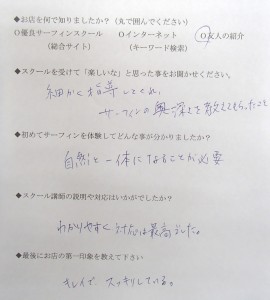 ◆お店を何で知りましたか？（丸で囲んでください）
○優良サーフィンスクール ○インターネット ○友人の紹介
（総合サイト） （キーワード検索）
◆スクールを受けて「楽しいな」と思った事をお聞かせください。
細かく指導してくれ、
サーフィンの奥深さを教えてもらったこと
◆初めてサーフィンを体験してどんな事が分かりましたか？
自然と一体になることが必要
◆スクール講師の説明や対応はいかがでしたか？
わかりやすく対応は最高でした。
◆最後にお店の第一印象を教えて下さい
キレイで スッキリしている。